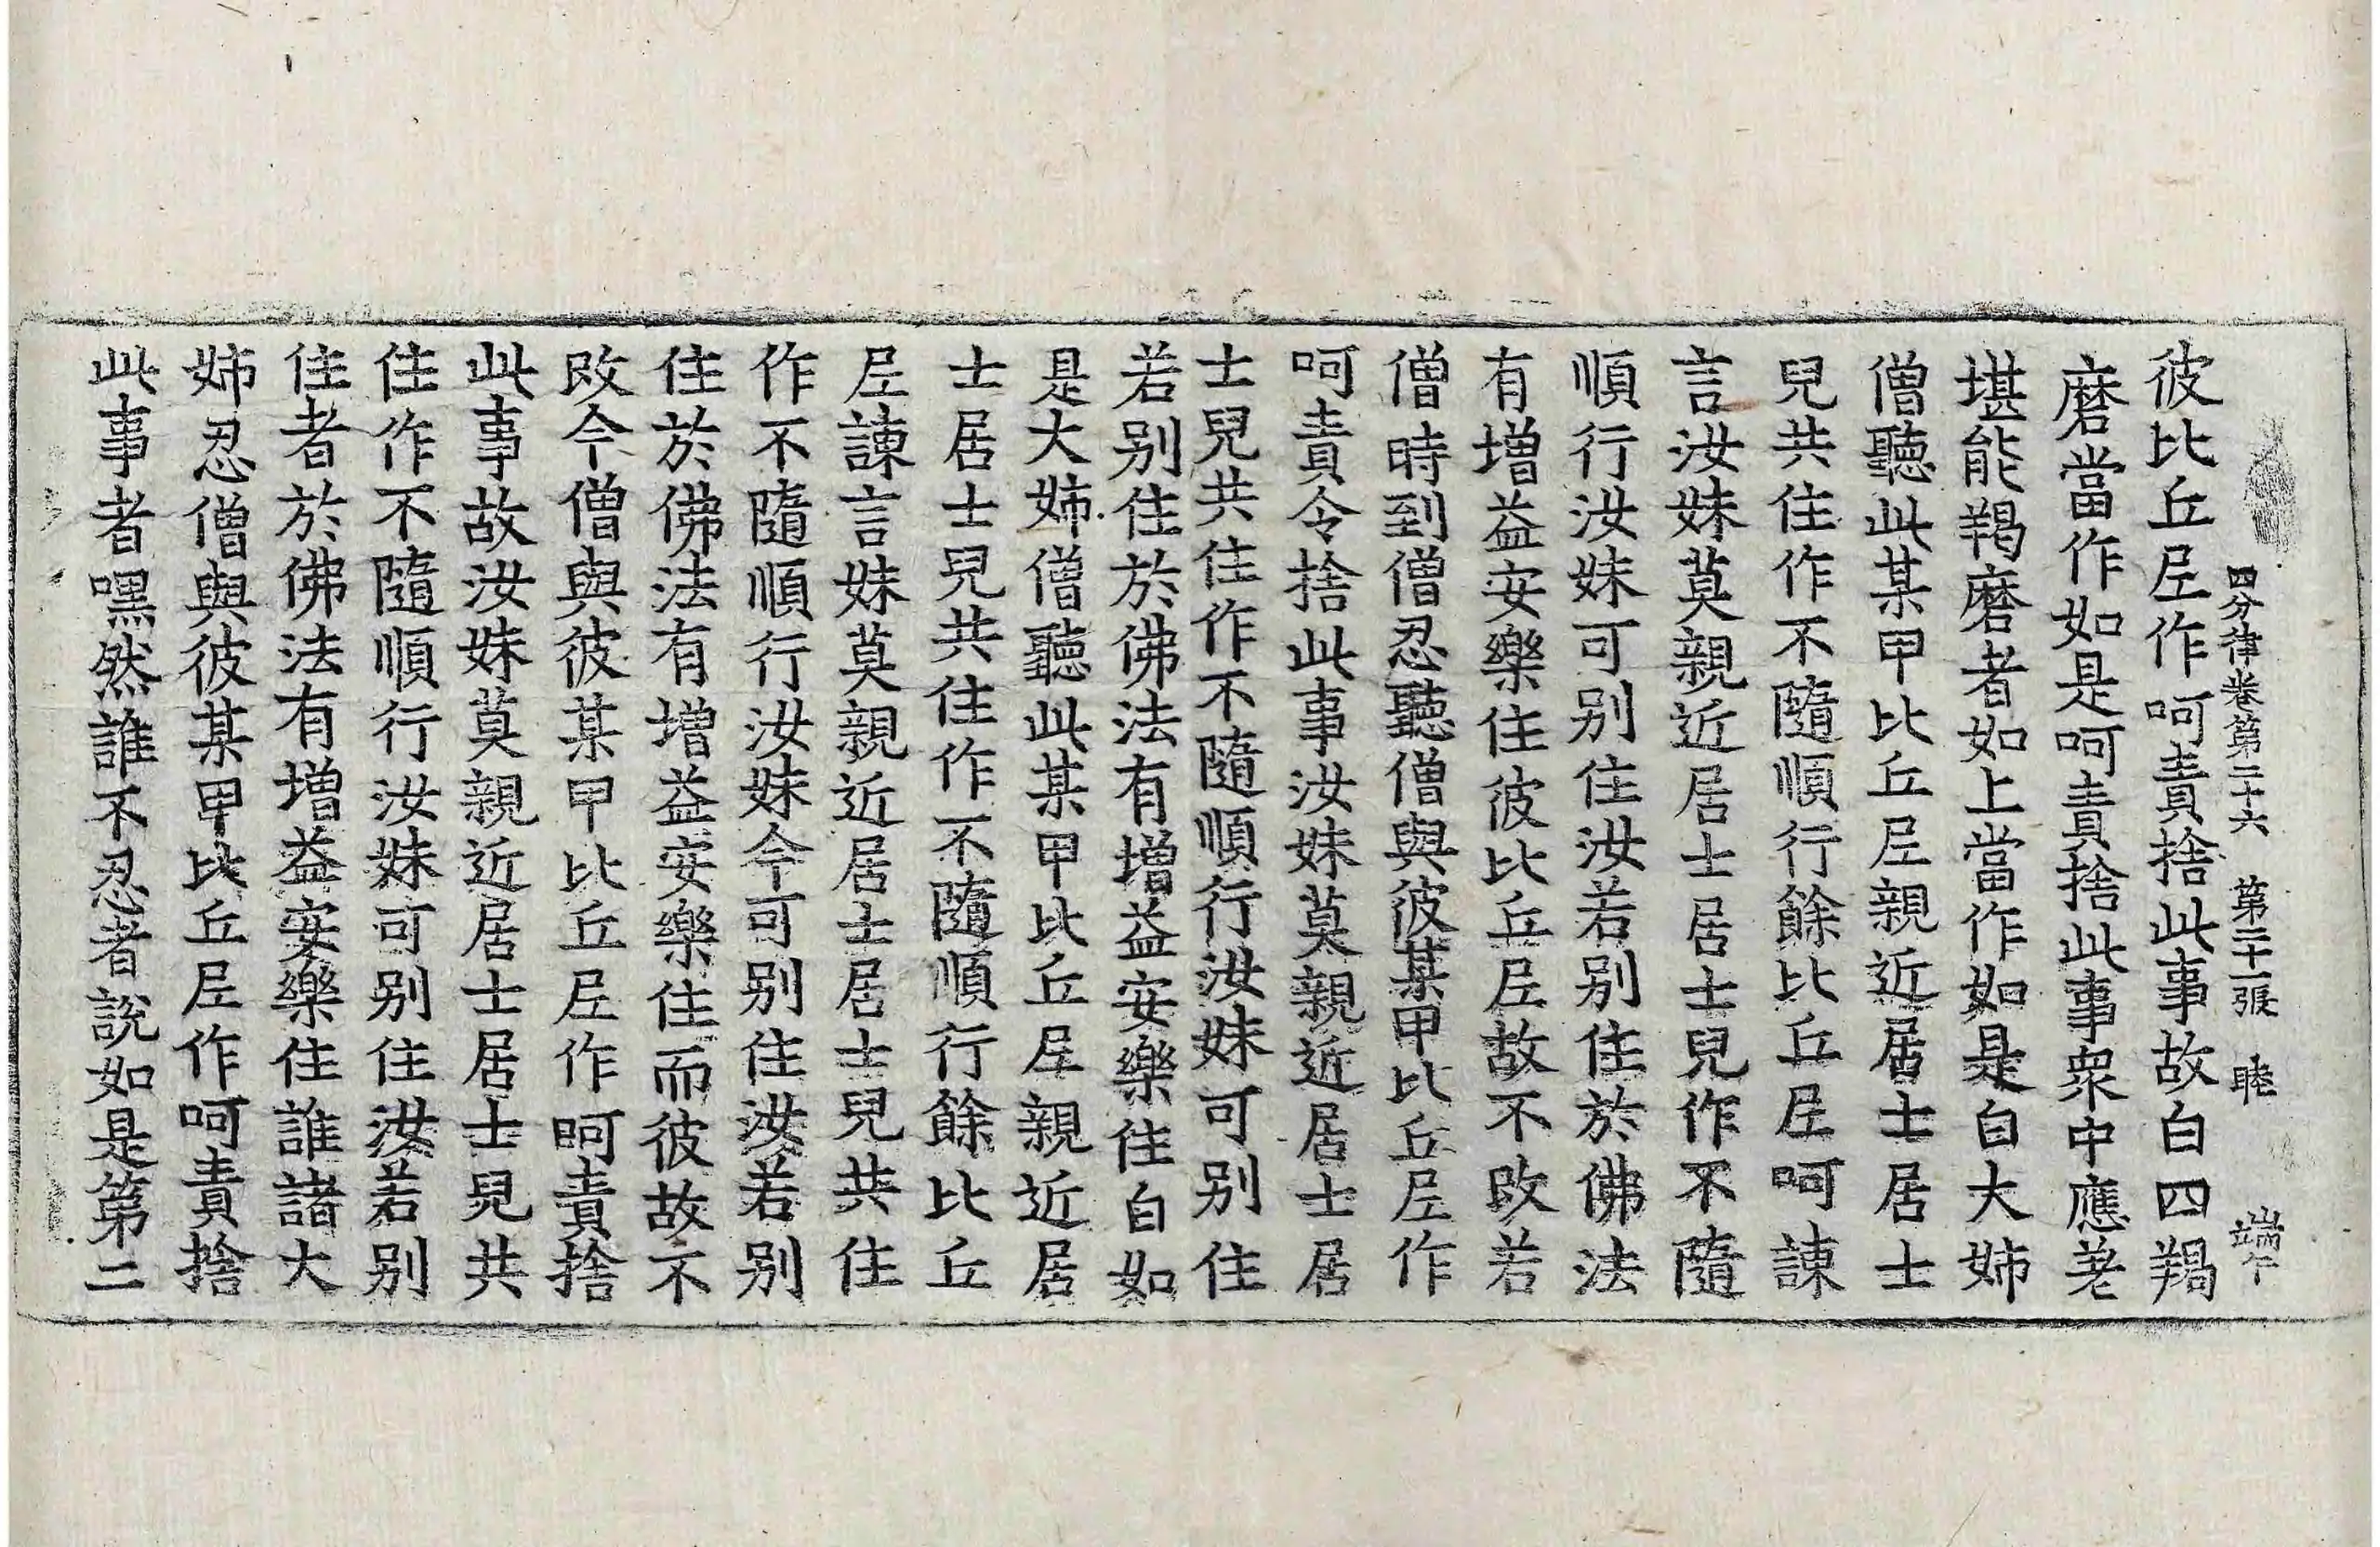 四分律卷第二十六　第二十一張　睦
彼比丘尼作呵責捨此事故白四羯
磨當作如是呵責捨此事衆中應差
堪能羯磨者如上當作如是白大姉
僧聽此某甲比丘尼親近居士居士
兒共住作不隨順行餘比丘尼呵諫
言汝妹莫親近居士居士兒作不隨
順行汝妹可別住汝若別住於佛法
有增益安樂住彼比丘尼故不改若
僧時到僧忍聽僧與彼某甲比丘尼作
呵責令捨此事汝妹莫親近居士居
士兒共住作不隨順行汝妹可別住
若別住於佛法有增益安樂住白如
是大姉僧聽此某甲比丘尼親近居
士居士兒共住作不隨順行餘比丘
尼諫言妹莫親近居士居士兒共住
作不隨順行汝妹今可別住汝若別
住於佛法有增益安樂住而彼故不
改今僧與彼某甲比丘尼作呵責捨
此事故汝妹莫親近居士居士兒共
住作不隨順行汝妹可別住汝若別
住者於佛法有增益安樂住誰諸大
姉忍僧與彼某甲比丘尼作呵責捨
此事者嘿然誰不忍者說如是第二